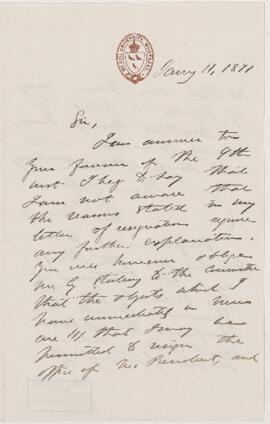 Jany 11, 1871
Sir,
In answer to
your favour of the 9th
inst I beg to say that
I am not aware that
the reasons stated in my
letter of resignation require
any further explanation.
You will however oblige
me by stating to the Committee
that the objects which I
have immediately in view
are 1st that I may be
permitted to resign the
office of Vice President, and